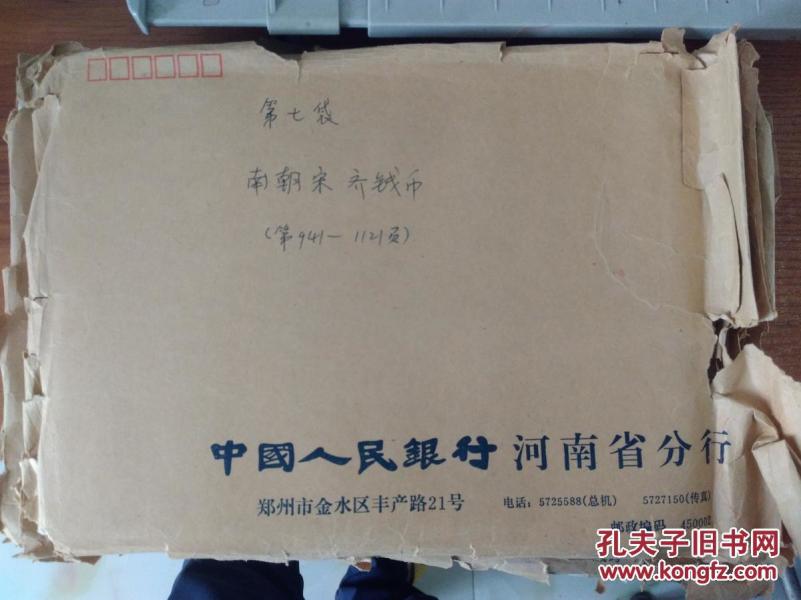 第七袋
南朝宋齐钱币
(第941—1121页)
中國人民銀行河南省分行
郑州市金水区丰产路21号 电话：5725588(总机) 5727150(传真)
邮政编码 450002
孔夫子旧书网
www.kongfz.com